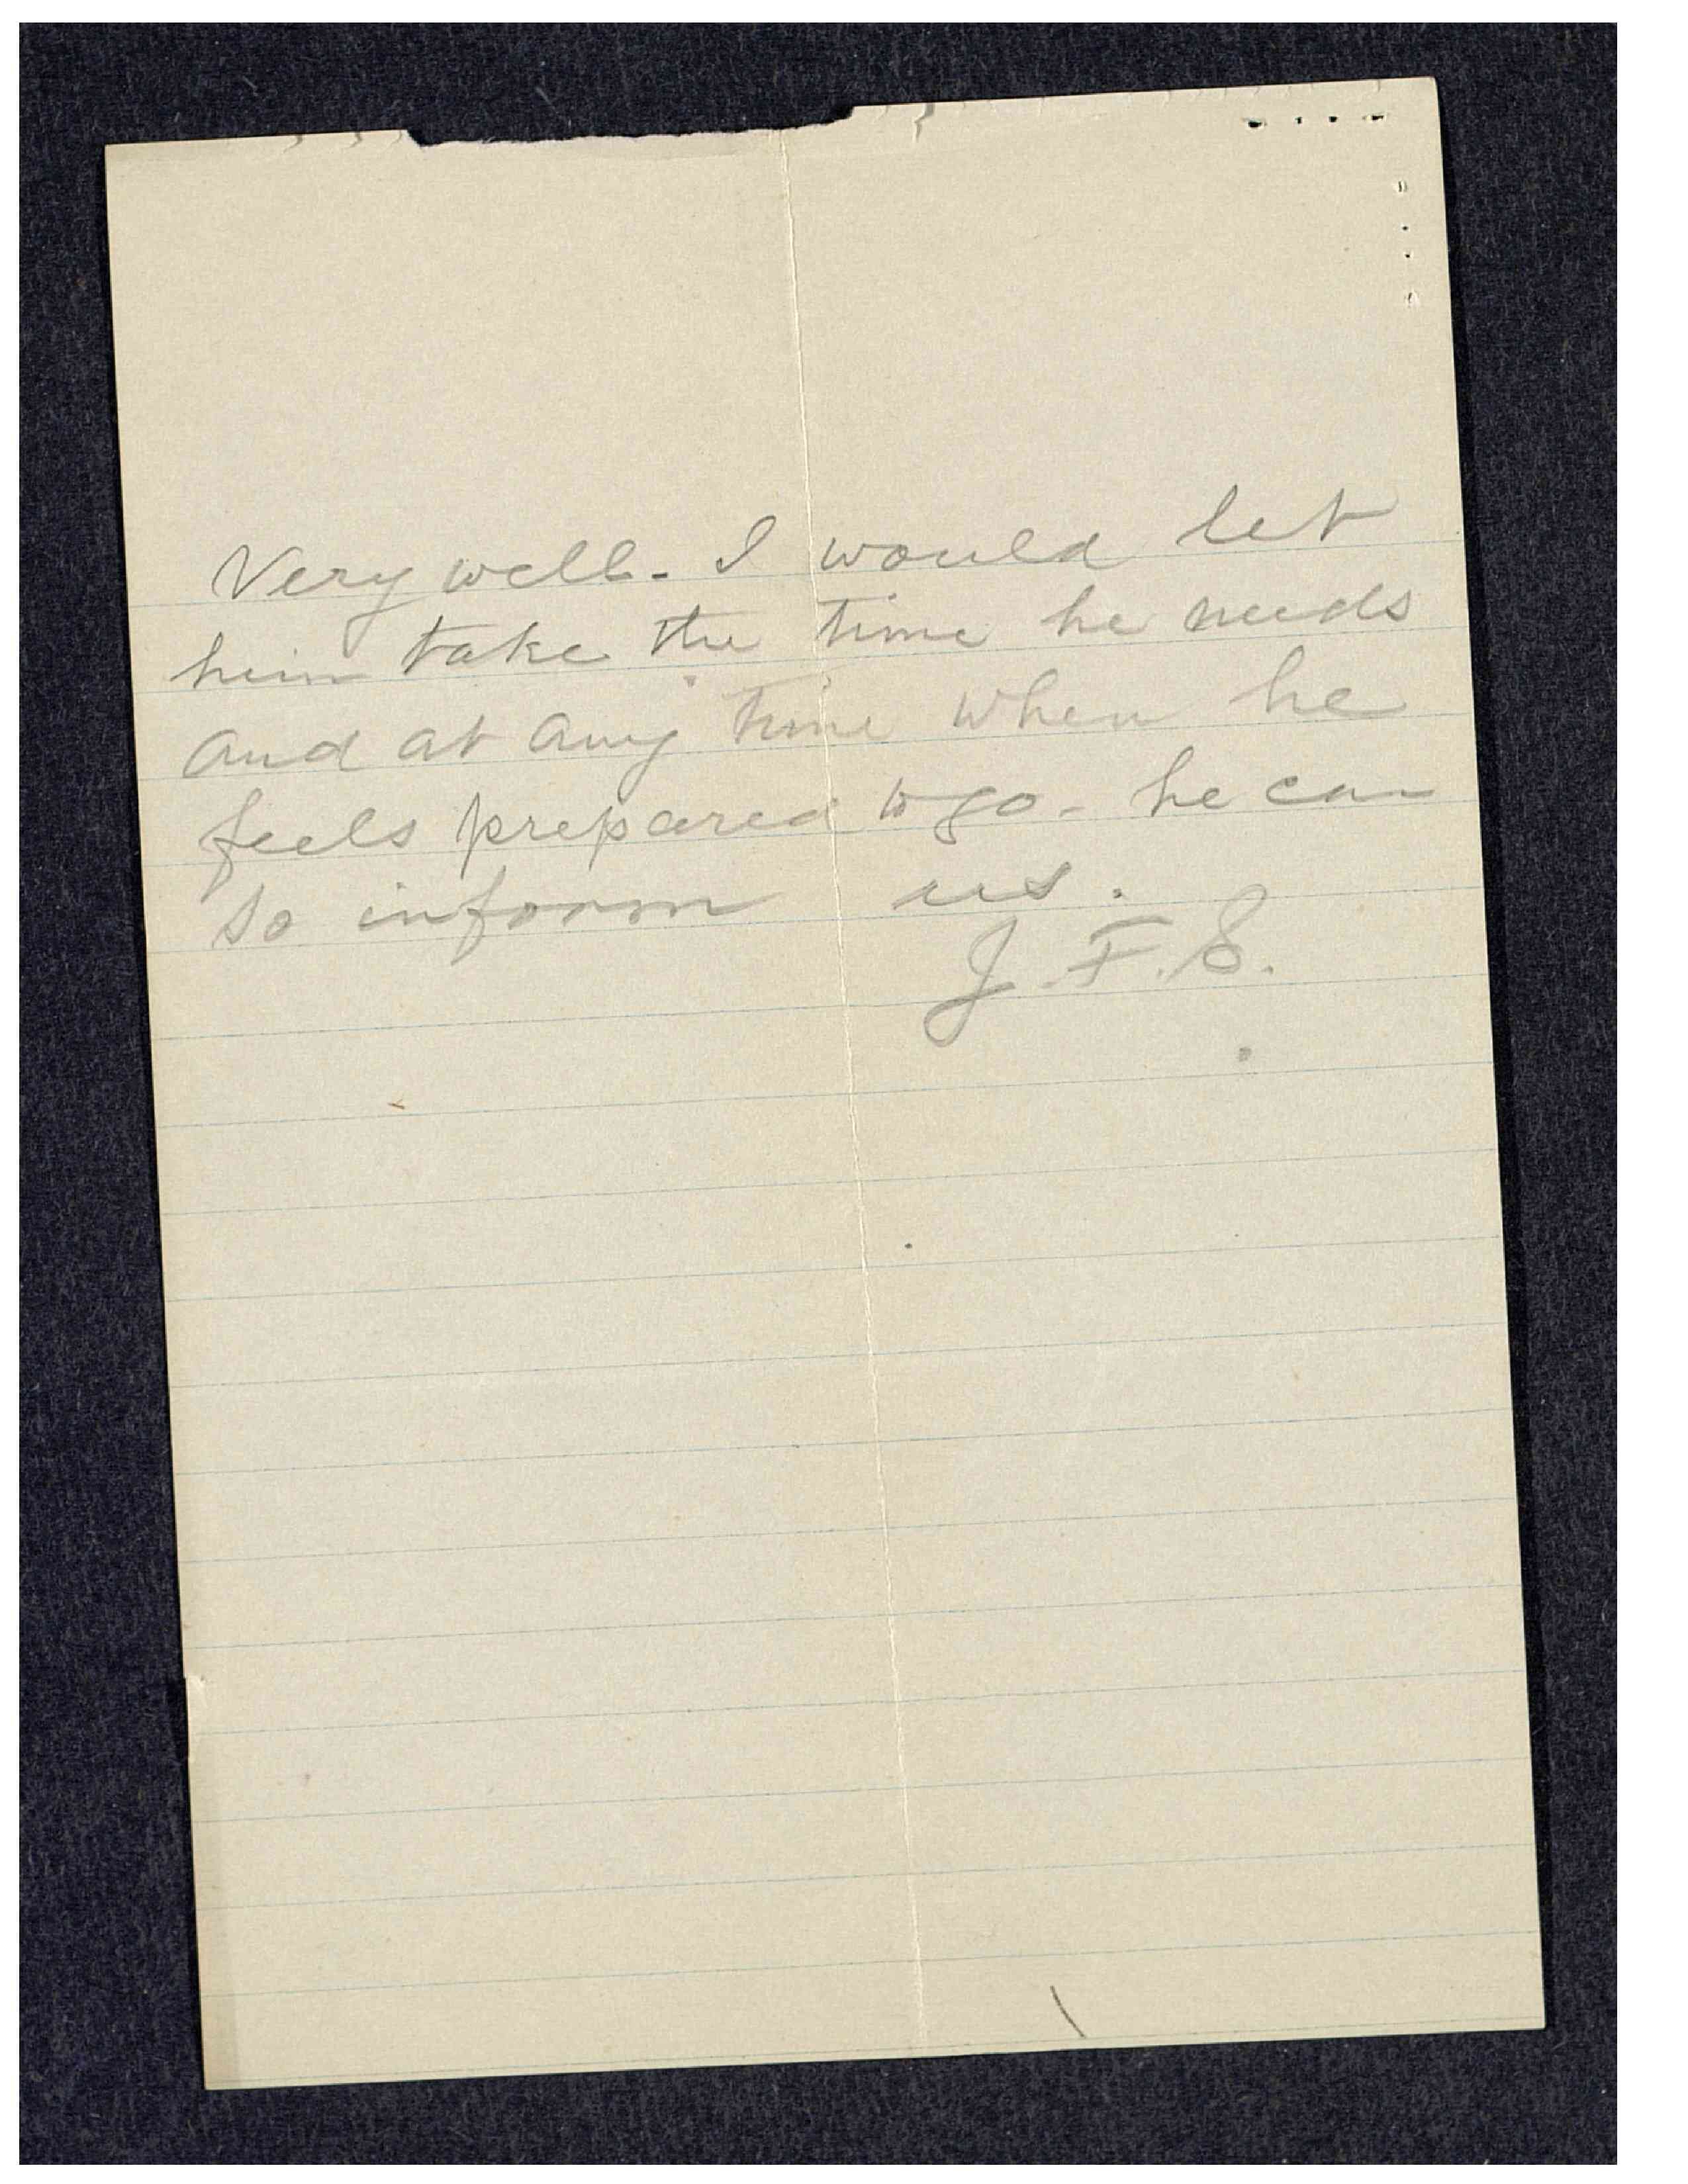 Very well. I would let
him take the time he needs
and at any time when he
feels prepared to go - he can
so inform us.
J. F. S.